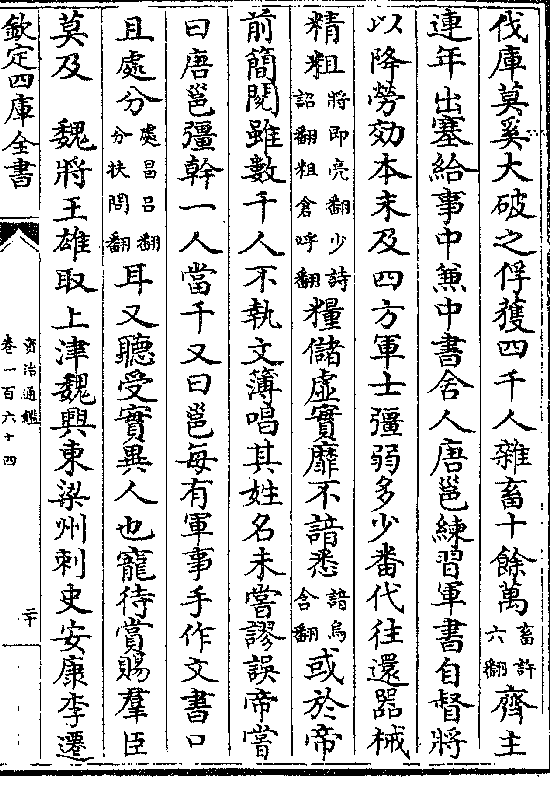 伐庫莫奚大破之俘獲四千人雜畜十餘萬畜許六翻齊主
連年出塞給事中兼中書舍人唐邕練習軍書自督將
以降勞効本末及四方軍士彊弱多少畨代往還器械
精粗將即亮翻少詩詔翻粗倉呼翻糧儲虚實靡不諳悉諳烏含翻或於帝
前簡閱雖數千人不執文簿唱其姓名未嘗謬誤帝嘗
曰唐邕彊幹一人當千又曰邕每有軍事手作文書口
且處分處昌呂翻分扶問翻耳又聽受實異人也寵待賞賜羣臣
莫及　魏將王雄取上津魏興東梁州刺史安康李遷
欽定四庫全書
資治通鑑
卷一百六十四
二十